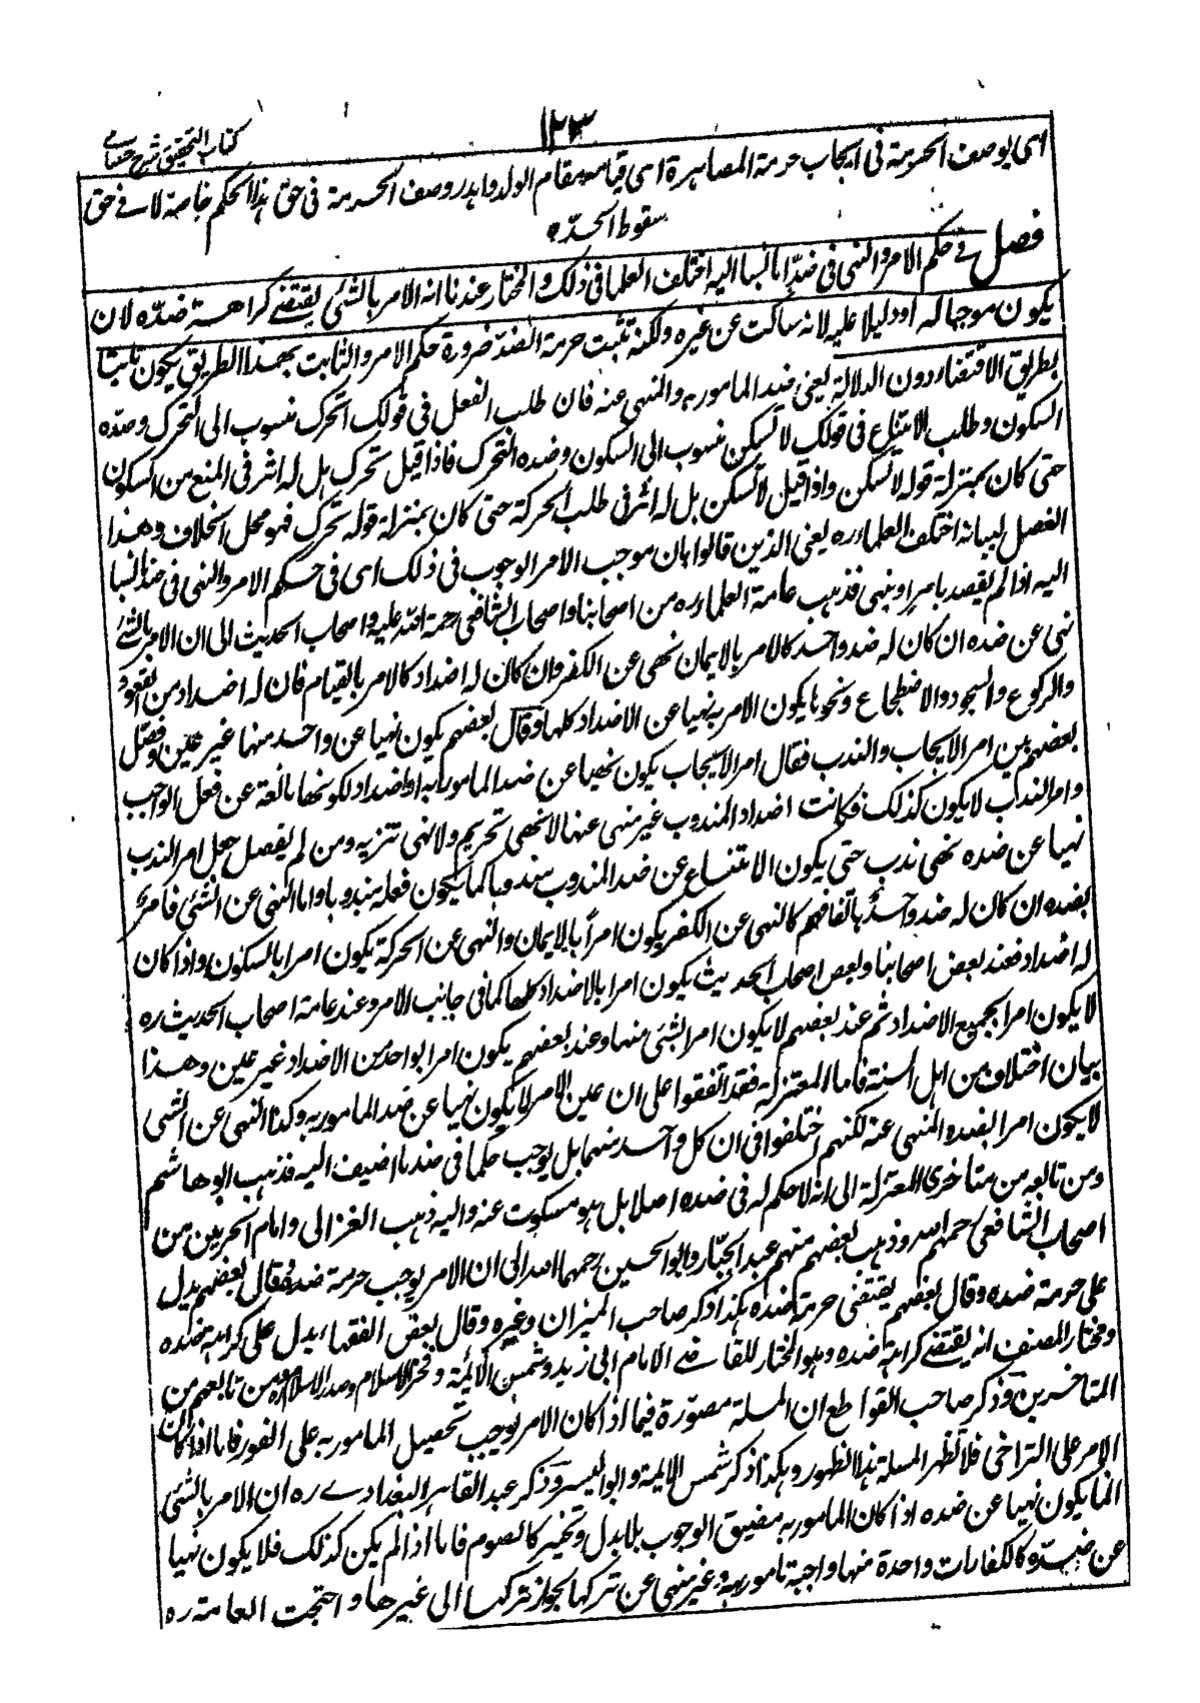 ١٢٣
كتاب التحقيق شرح حسامي
اى يوصف الحرمة فى ايجاب حرمة المصاهرة اى قيامه مقام الولد واهدر وصف الحرمة فى حق هذا الحكم خاصة لا فے حق
سقوط الحد ه
فصل فے حكم الامر والنهى فى ضد ما نسبا اليه اختلف العلما فى ذلك والمختار عندنا انه الامر بالشئ يقتضے كراهة ضده لان
يكون موجبا له او دليلا عليه لانه ساكت عن غيره ولكنه تثبت حرمة الضد ضرورة حكم الامر والثابت بهذا الطريق يكون ثابتا
بطريق الاقتضاء دون الدلالة يعنى ضد المامور به والمنهى عنه فان طلب الفعل فى قولك تحرك منسوب الى التحرك وضده
السكون وطلب الامتناع فى قولك لا تسكن منسوب الى السكون وضده التحرك فاذا قيل تحرك هل له اثر فى المنع من السكون
حتى كان بمنزلة قوله لا تسكن واذا قيل لا تسكن هل له اثر فى طلب الحركة حتى كان بمنزلة قوله تحرك فهو محل الخلاف وهذا
الفصل لبيانه اختلف العلماء ره يعنى الذين قالوا بان موجب الامر الوجوب فى ذلك اى فى حكم الامر والنهى فى ضد ما نسبا
اليه اذا لم يقصد بامر او نهى فذهب عامة العلماء ره من اصحابنا واصحاب الشافعى رحمة الله عليه واصحاب الحديث الى ان الامر بالشئ
نهى عن ضده ان كان له ضد واحد كالامر بالايمان نهى عن الكفر وان كان له اضداد كالامر بالقيام فان له اضداد من القعود
والركوع والسجود والاضطجاع ونحوها يكون الامر به نهيا عن الاضداد كلها وقال بعضهم يكون نهيا عن واحد منها غير عين وفصل
بعضهم بين امر الايجاب والندب فقال امر الايجاب يكون نهيا عن ضد المامور به او اضداد لكونها مانعة عن فعل الواجب
وامر الندب لا يكون كذلك فكانت اضداد المندوب غير منهى عنها لا نهى تحريم ولا نهى تنزيه ومن لم يفصل جعل امر الندب
نهيا عن ضده نهى ندب حتى يكون الامتناع عن ضد المندوب مندوبا كما يكون فعله مندوبا واما النهى عن الشئ فامر
بضده ان كان له ضد واحد باتفاقهم كالنهى عن الكفر يكون امرا بالايمان والنهى عن الحركة يكون امرا بالسكون واذا كان
له اضداد فعند بعض اصحابنا وبعض اصحاب الحديث يكون امرا بالاضداد كلها كما فى جانب الامر وعند عامة اصحاب الحديث ره
لا يكون امرا بجميع الاضداد ثم عند بعضهم لا يكون امرا بشئ منها وعند بعضهم يكون امرا بواحد من الاضداد غير عين وهذا
بيان اختلاف بين اهل السنة فاما المعتزلة فقد اتفقوا على ان عين الامر لا يكون نهيا عن ضد المامور به وكذا النهى عن الشئ
لا يكون امرا بضد المنهى عنه لكنهم اختلفوا فى ان كل واحد منهما هل يوجب حكما فى ضد ما اضيف اليه فذهب ابو هاشم
ومن تابعه من متاخرى المعتزلة الى انه لا حكم له فى ضده اصلا بل هو مسكوت عنه واليه ذهب الغزالى وامام الحرمين من
اصحاب الشافعى رحمهم الله وذهب بعضهم منهم عبد الجبار وابو الحسين رحمهما الله الى ان الامر يوجب حرمة ضده وقال بعضهم يدل
على حرمة ضده وقال بعضهم يقتضى حرمة ضده هكذا ذكر صاحب الميزان وغيره وقال بعض الفقهاء يدل على كراهة ضده
ومختار المصنف انه يقتضے كراهة ضده وهو المختار للقاضے الامام ابى زيد وشمس الائمة وفخر الاسلام وصدر الاسلام ومن تابعهم من
المتاخرين وذكر صاحب القواطع ان المسئلة مصورة فيما اذا كان الامر يوجب تحصيل المامور به على الفور فاما اذا كان
الامر على التراخى فلا تظهر المسئلة هذا الظهور وهكذا ذكر شمس الائمة وابو اليسر وذكر عبد القاهر البغدادے ره ان الامر بالشئ
انما يكون نهيا عن ضده اذا كان المامور به مضيق الوجوب بلا بدل وتخيير كالصوم فاما اذا لم يكن كذلك فلا يكون نهيا
عن ضده كالكفارات واحدة منها واجبة مامور بها وغير منهى عن تركها لجواز تركها الى غيرها واحتجت العامة ره